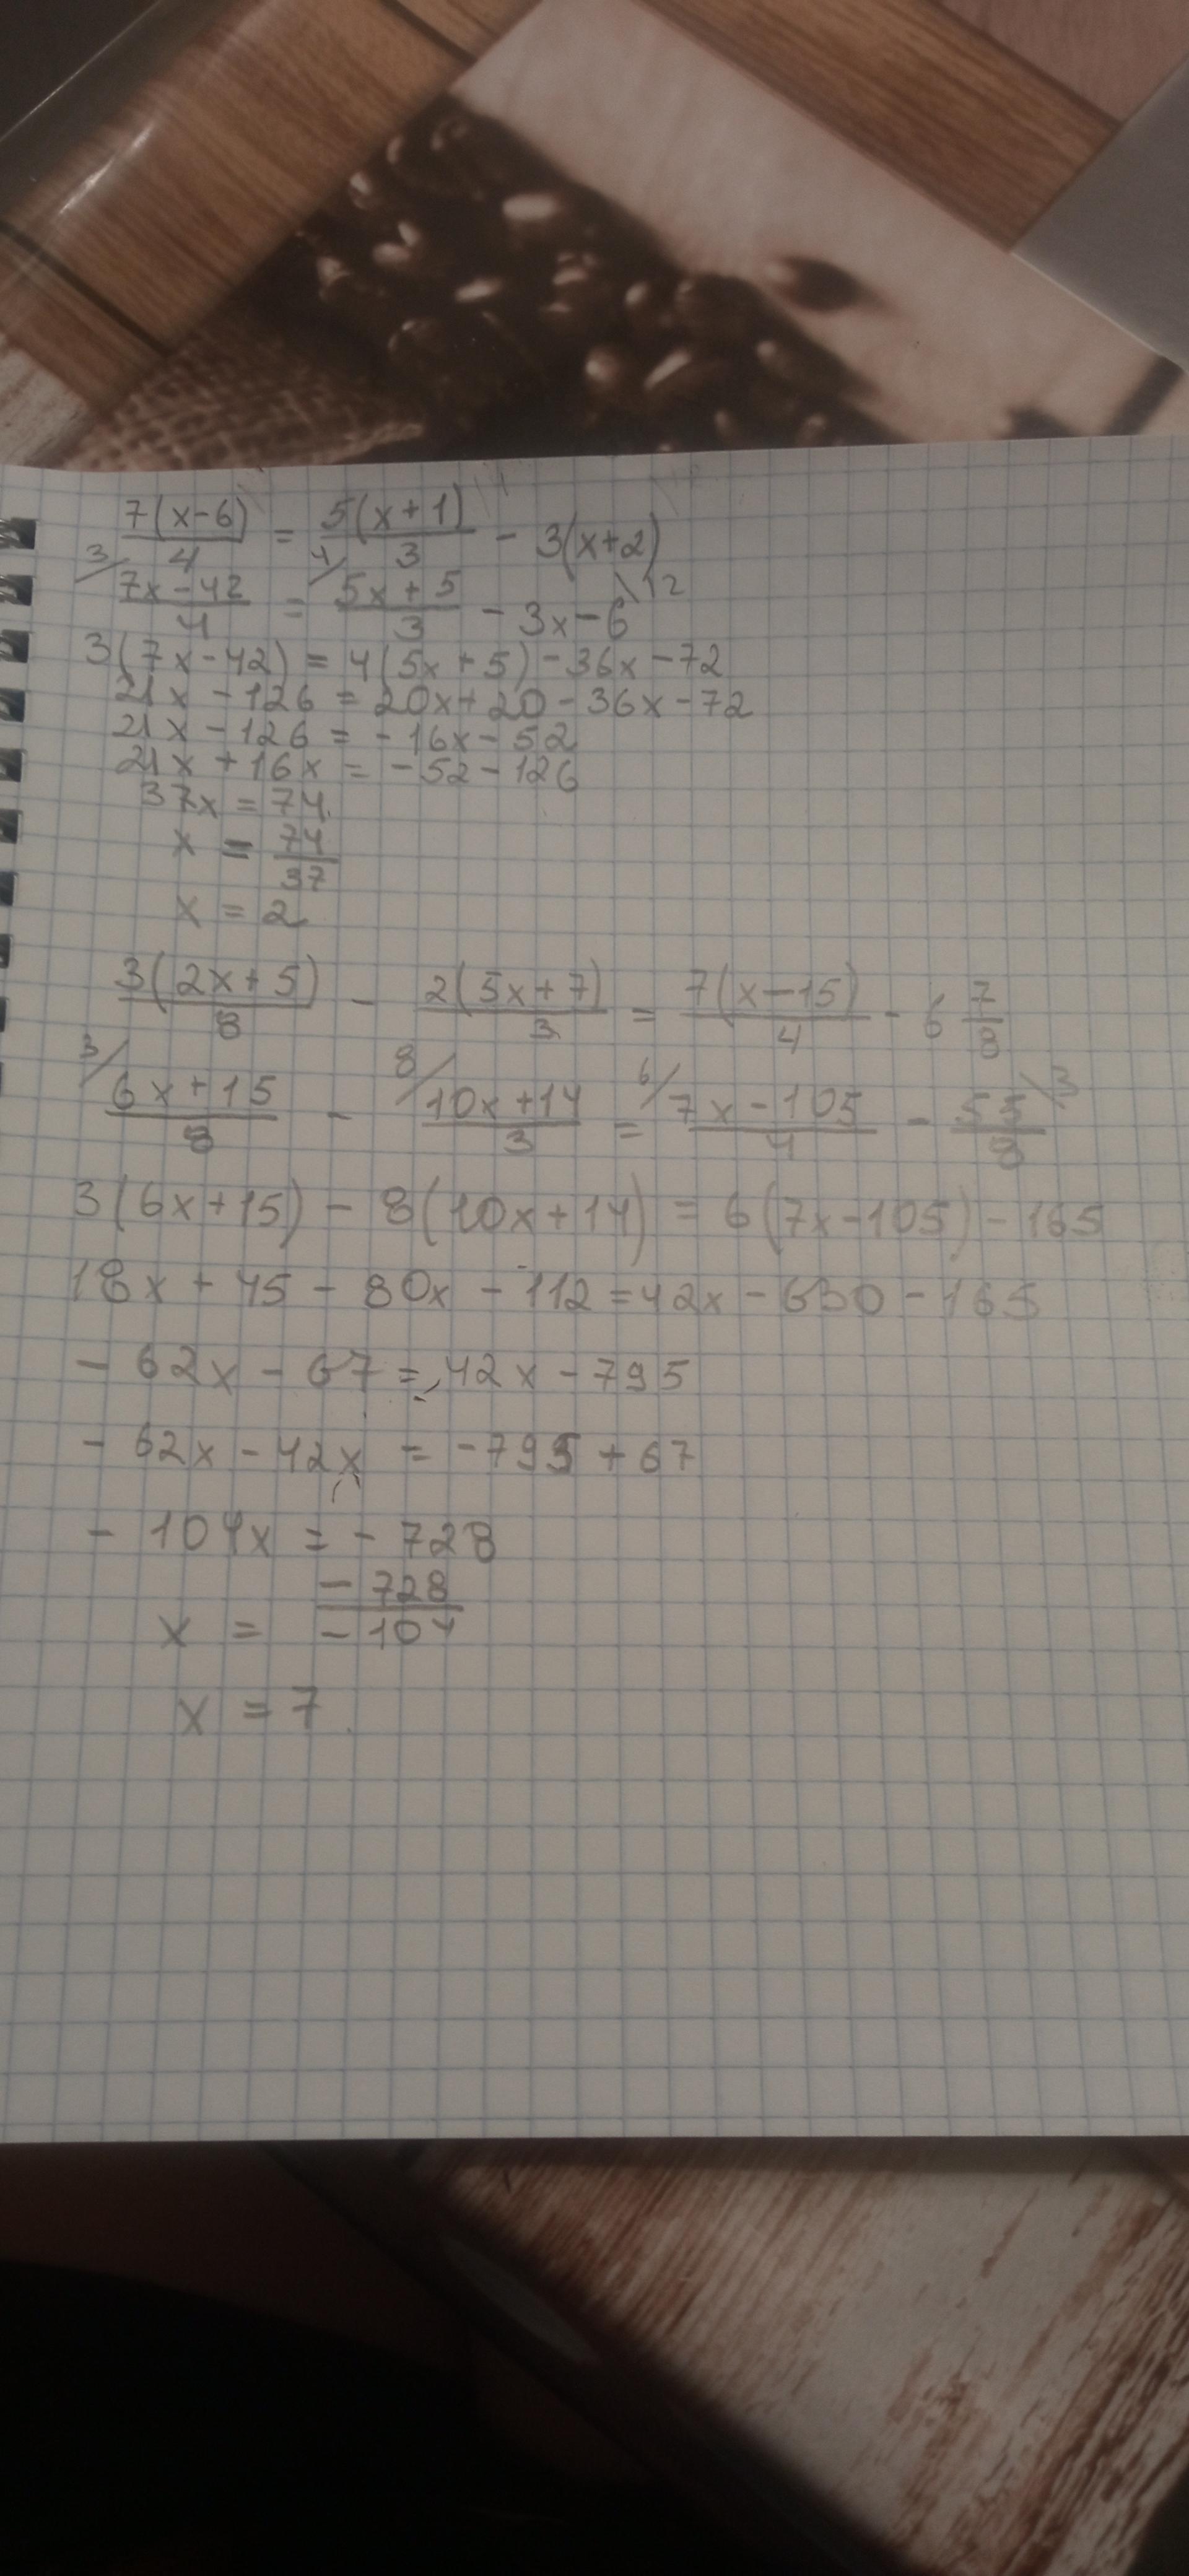 7(x-6)/4 = 5(x+1)/3 - 3(x+2)
3/ 7x-42/4 = 4/ 5x+5/3 - 3x-6 \12
3(7x-42) = 4(5x+5)-36x-72
21x-126 = 20x+20-36x-72
21x-126 = -16x-52
21x+16x = -52-126
37x = 74
x = 74/37
x = 2
3(2x+5)/8 - 2(5x+7)/3 = 7(x-15)/4 - 6 7/8
3/ 6x+15/8 - 8/ 10x+14/3 = 6/ 7x-105/4 - 55/8 \3
3(6x+15) - 8(10x+14) = 6(7x-105)-165
18x+45-80x-112=42x-630-165
-62x-67=42x-795
-62x-42x = -795+67
-104x = -728
x = -728/-104
x = 7